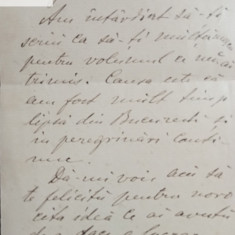 Am întârdiat să-ți
scriu ca să-ți mulțămesc
pentru volumul ce mi-ai
trimis. Causa este că
am fost mult timp
lipsă din București și
în peregrinări conti-
nue.
Dă-mi voie aci să
te felicit pentru noro-
cita idee ce ai avut